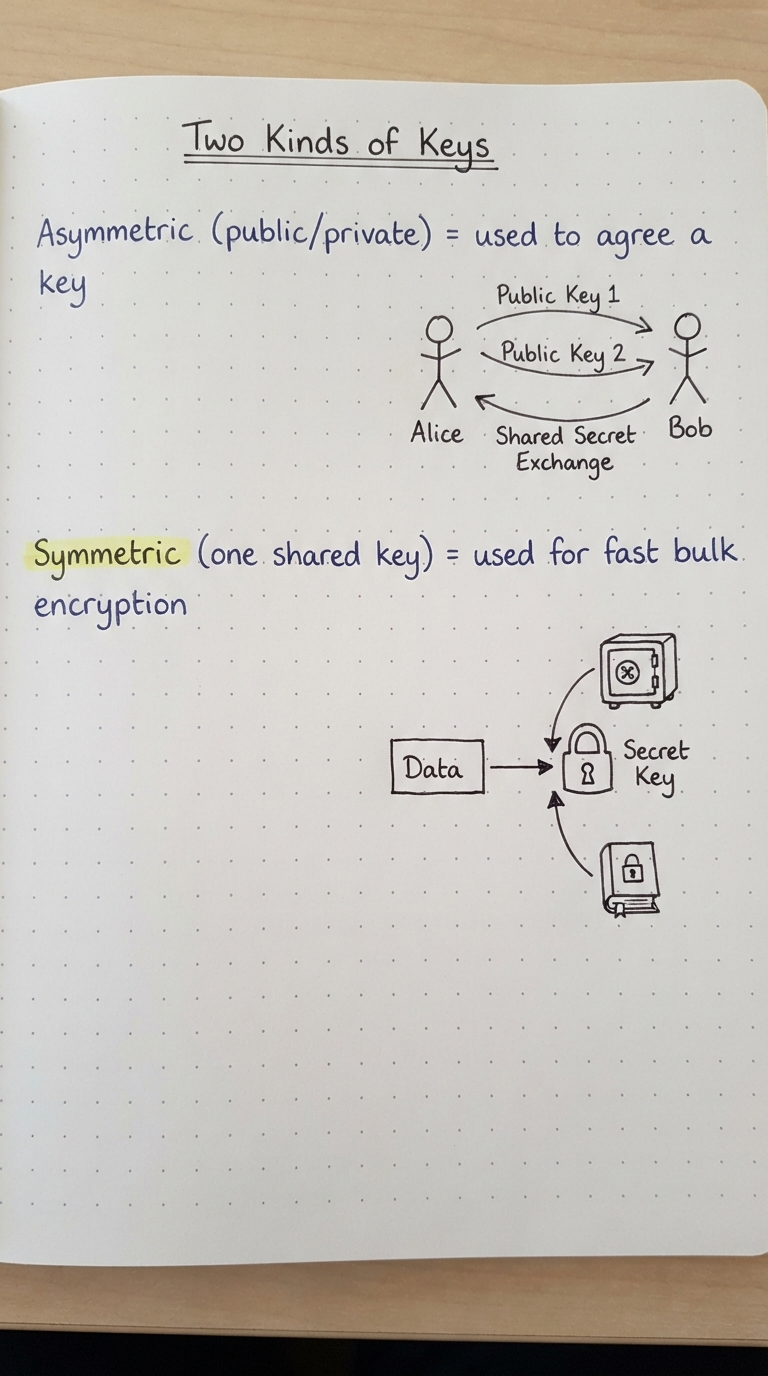 Two Kinds of Keys
Asymmetric (public/private) = used to agree a
key
Public Key 1
Public Key 2
Alice
Shared Secret
Exchange
Bob
Symmetric (one shared key) = used for fast bulk
encryption
Data
Secret
Key